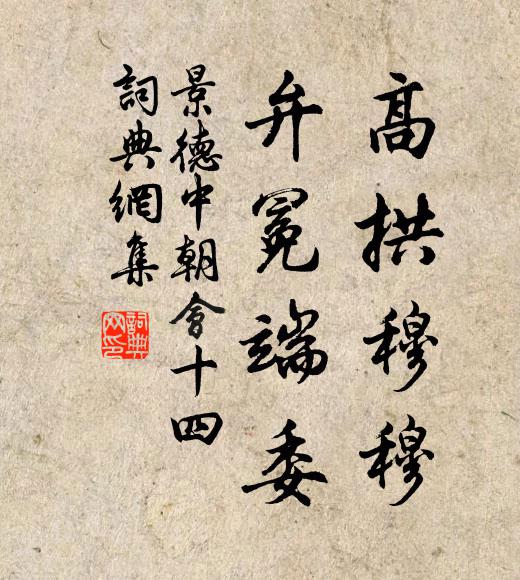 高拱穆穆
弁冕端委
景德中朝會十四
詞典網集
詞典
网印